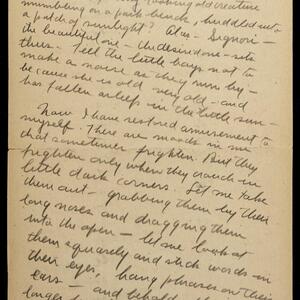 looking old creature
mumbling on a park bench, huddled into
a patch of sunlight? Alas - Signori -
the beautiful one - the desired one - sits
thus. Tell the little boys not to
make a noise as they run by -
because she is old, very old - and
has fallen asleep in the little sun -
Now I have restored amusement to
myself. There are moods in me
that sometimes frighten. But they
frighten only when they crouch in
little dark corners. Let me take
them out - grabbing them by their
long noses and dragging them
into the open - let me look at
them squarely and stick words in
their eyes, hang phrases on their
ears - and behold
longer